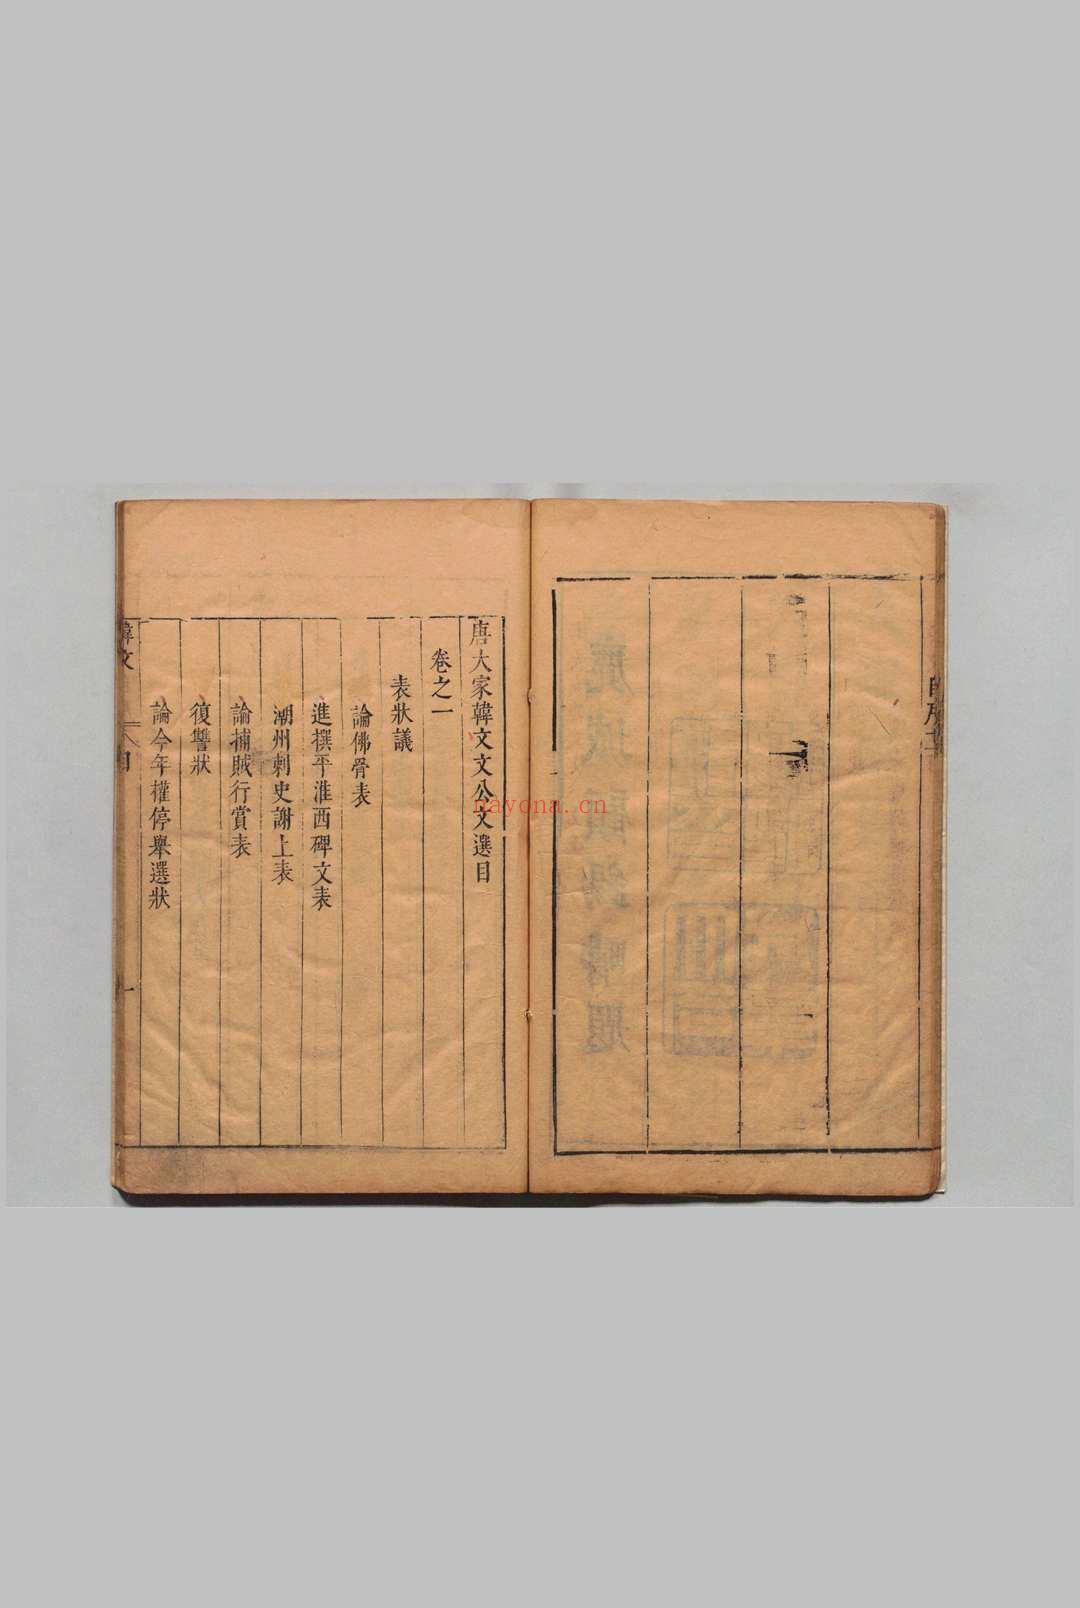 唐大家韓文文公文選目
卷之一
表狀議
論佛骨表
進撰平淮西碑文表
潮州刺史謝上表
論捕賊行賞表
復讐狀
論今年權停舉選狀
韓文
目
一
nayona.cn